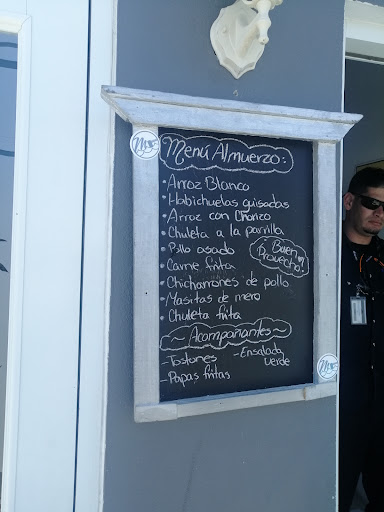 Menú Almuerzo:
• Arroz Blanco
• Habichuelas guisadas
• Arroz con Chorizo
• Chuleta a la parrilla
• Pollo asado
• Carne frita
¡Buen
Provecho!
• Chicharrones de pollo
• Masitas de mero
• Chuleta frita
~ Acompañantes ~
- Tostones
- Ensalada
verde
- Papas fritas